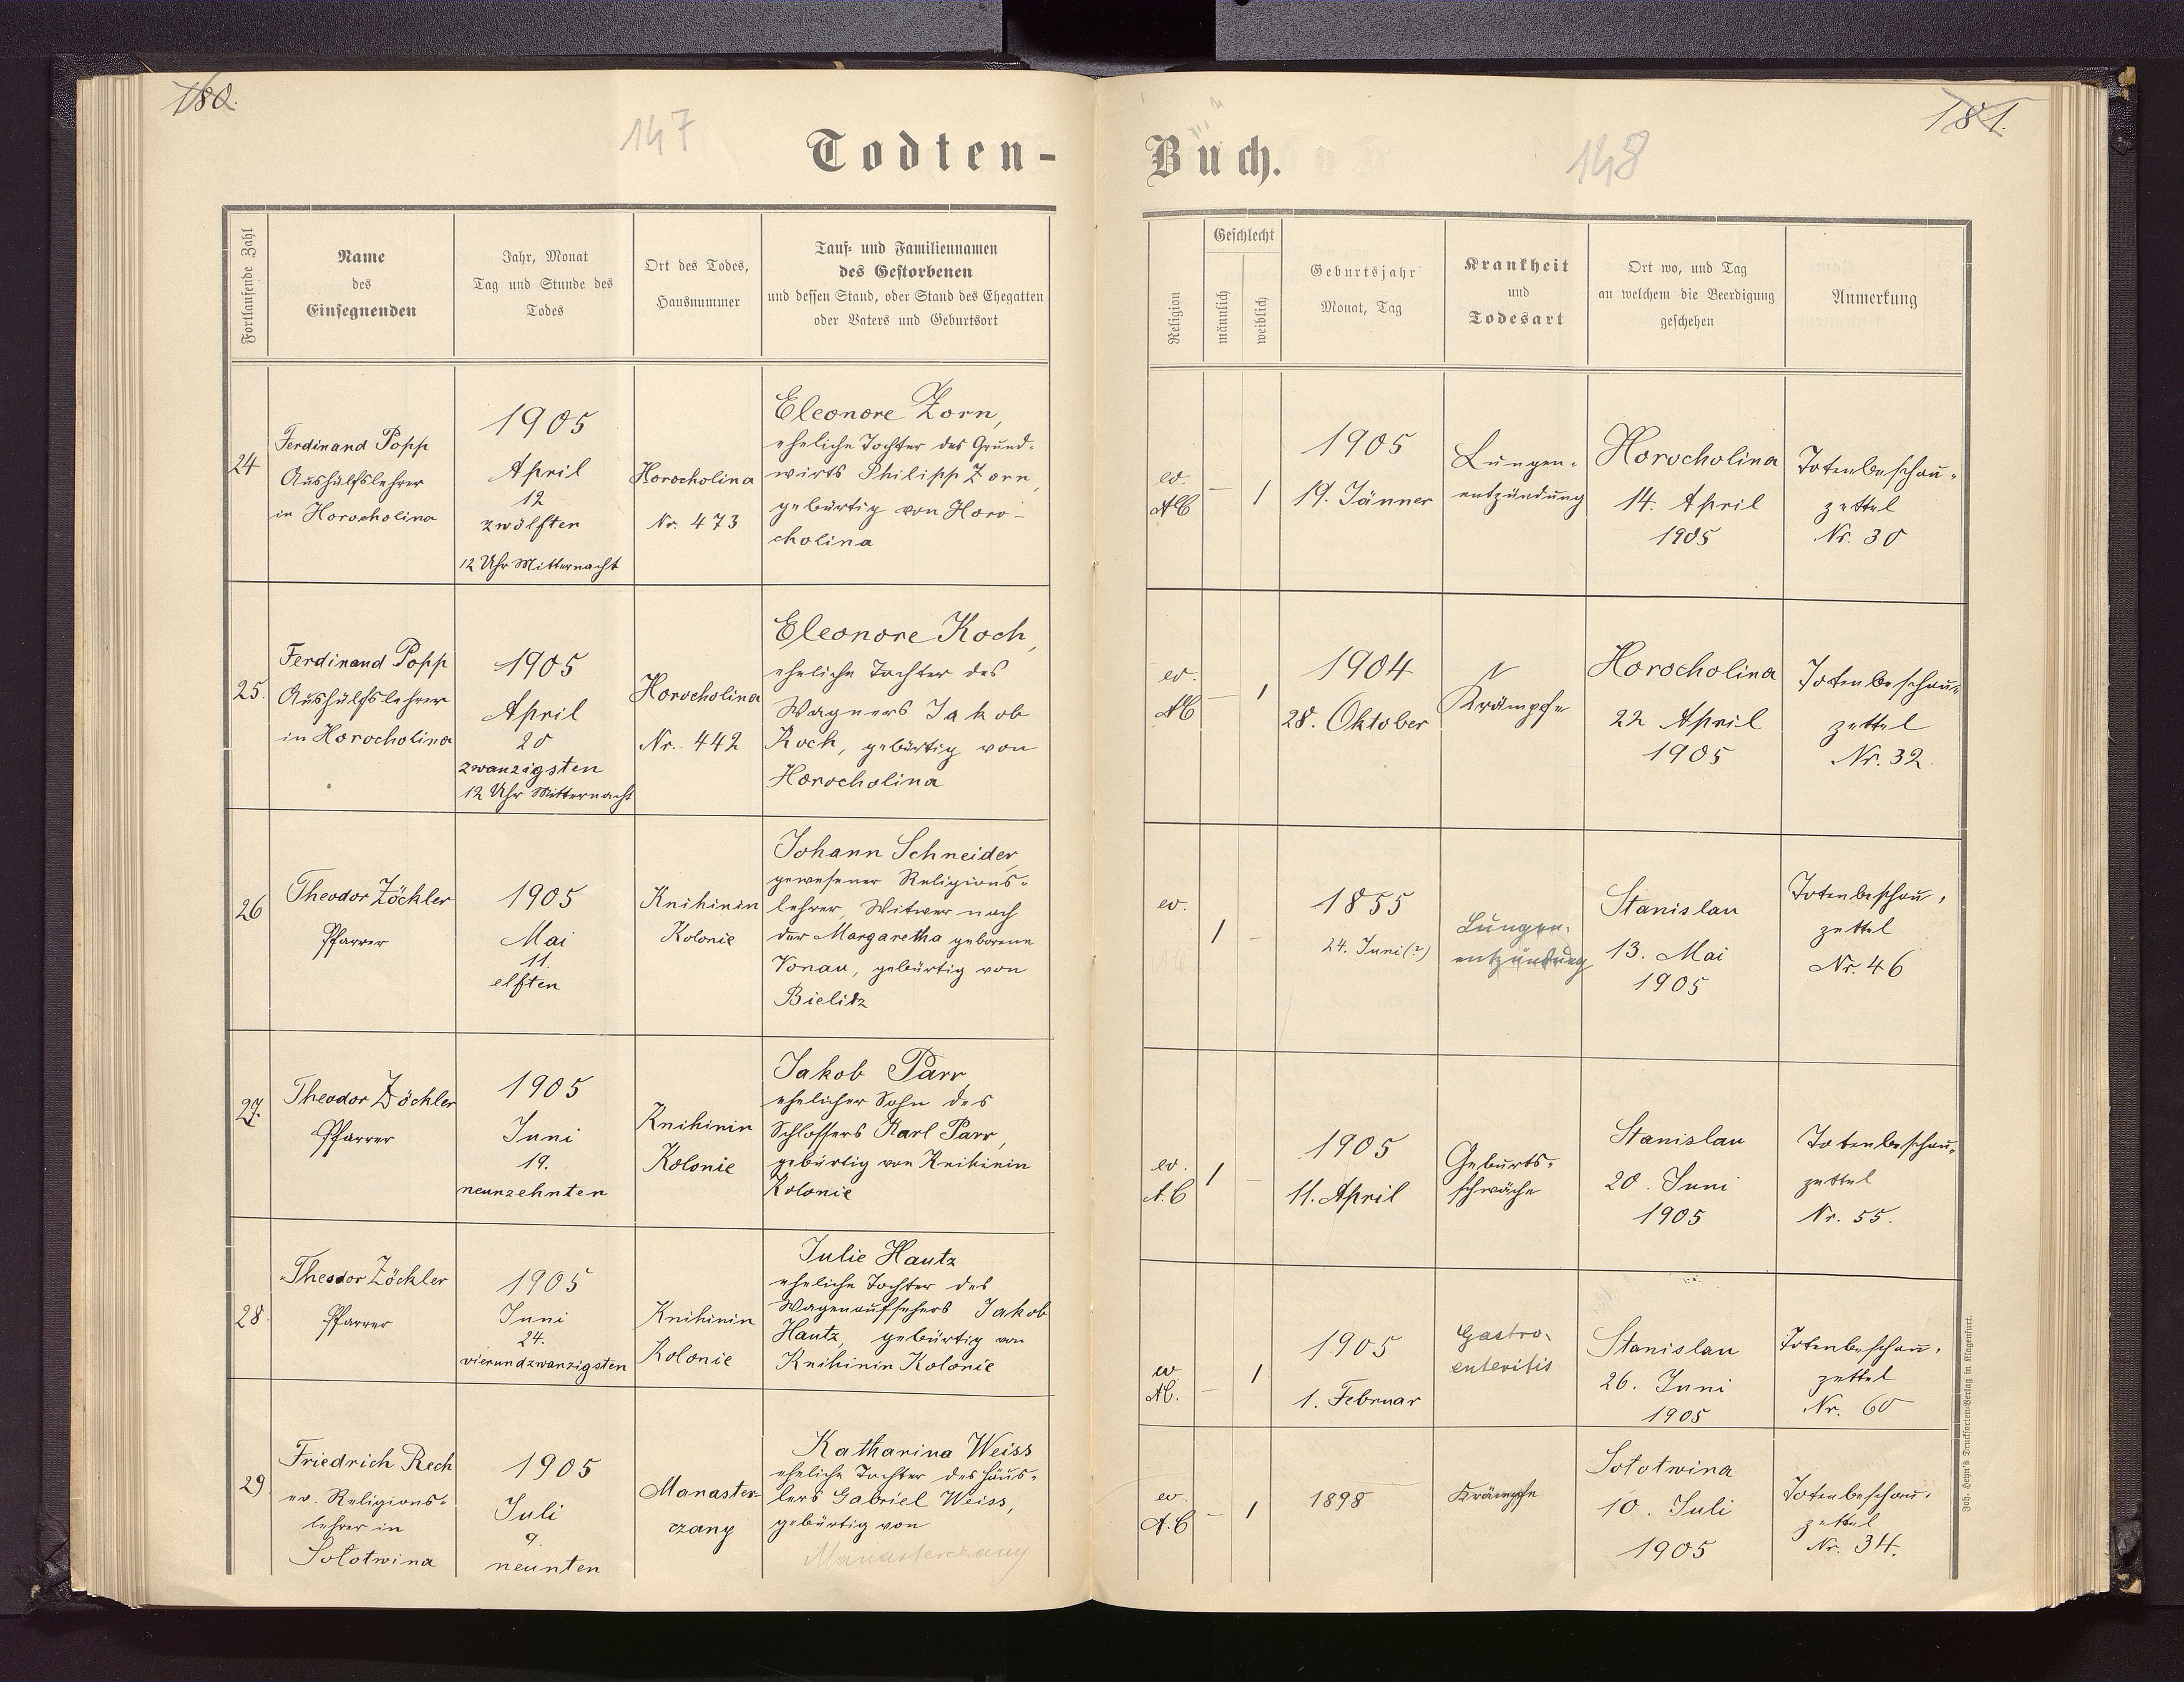 180.
147
Todten-
Fortlaufende Zahl
Name
des
Einsegnenden
Jahr, Monat
Tag und Stunde des
Todes
Ort des Todes,
Hausnummer
Tauf- und Familiennamen
des Gestorbenen
und dessen Stand, oder Stand des Ehegatten
oder Vaters und Geburtsort
24
Ferdinand Popp
Aushülfslehrer
in Horocholina
1905
April
12
zwölften
12 Uhr Mitternacht
Horocholina
Nr. 473
Eleonore Zorn,
eheliche Tochter des Grund-
wirts Philipp Zorn,
gebürtig von Horo-
cholina
25.
Ferdinand Popp
Aushülfslehrer
in Horocholina
1905
April
20
zwanzigsten
12 Uhr Mitternacht
Horocholina
Nr. 442
Eleonore Koch,
eheliche Tochter des
Wagners Jakob
Koch, gebürtig von
Horocholina
26
Theodor Zöckler
Pfarrer
1905
Mai
11.
elften
Knihinin
Kolonie
Johann Schneider,
gewesener Religions-
lehrer, Witwer nach
der Margaretha geborene
Vonau, gebürtig von
Bielitz
27.
Theodor Zöckler
Pfarrer
1905
Juni
19.
neunzehnten
Knihinin
Kolonie
Jakob Parr,
ehelicher Sohn des
Schlossers Karl Parr,
gebürtig von Knihinin
Kolonie
28.
Theodor Zöckler
Pfarrer
1905
Juni
24.
vierundzwanzigsten
Knihinin
Kolonie
Julie Hautz
eheliche Tochter des
Wagenaufsehers Jakob
Hautz, gebürtig von
Knihinin Kolonie
29
Friedrich Rech
ev. Religions-
lehrer in
Sołotwina
1905
Juli
9.
neunten
Manaster-
czany
Katharina Weiss
eheliche Tochter des Häus-
lers Gabriel Weiss,
gebürtig von
Manasterczany
181.
148
Buch.
Religion
Geschlecht
männlich
weiblich
Geburtsjahr
Monat, Tag
Krankheit
und
Todesart
Ort wo, und Tag
an welchem die Beerdigung
geschehen
Anmerkung
ev.
AC
— 1
1905
19. Jänner
Lungen-
entzündung
Horocholina
14. April
1905
Totenbeschau-
zettel
Nr. 30
ev.
AC
— 1
1904
28. Oktober
Krämpfe
Horocholina
22 April
1905
Totenbeschau-
zettel
Nr. 32.
ev.
1 —
1855
24. Juni (?)
Lungen-
entzündung
Stanislau
13. Mai
1905
Totenbeschau-
zettel
Nr. 46
ev.
A.C
1 —
1905
11. April
Geburts-
schwäche
Stanislau
20. Juni
1905
Totenbeschau-
zettel
Nr. 55.
ev
AC.
— 1
1905
1. Februar
Gastro-
enteritis
Stanislau
26. Juni
1905
Totenbeschau-
zettel
Nr. 60
ev.
A.C
— 1
1898
Krämpfe
Sołotwina
10. Juli
1905
Totenbeschau-
zettel
Nr. 34.
Joh. Heyn's Drucksorten-Verlag in Klagenfurt.